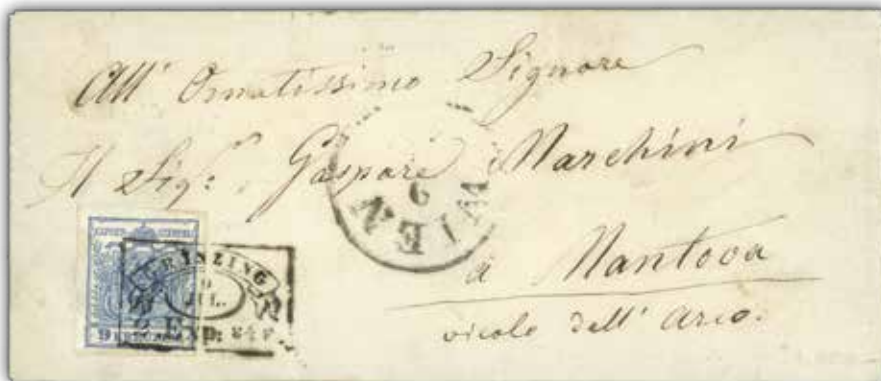 All' Ornatissimo Signore
Il Sig.r Gaspare Marchini
WIEN
9
à Mantova
vicolo dell' Arco.
GRINZING
9
JUL.
EXP:
9